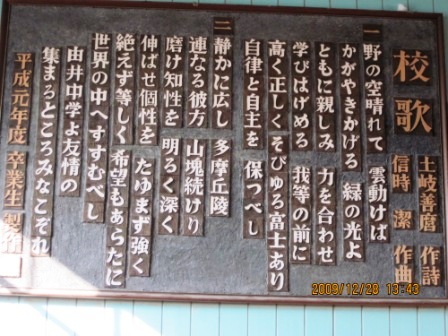 校歌
土岐善麿 作詩
信時 潔 作曲
一 野の空晴れて 雲動けば
かがやきかげる 緑の光よ
ともに親しみ 力を合わせ
学びはげめる 我等の前に
高く正しく そびゆる富士あり
自律と自主を 保つべし
二 静かに広し 多摩丘陵
連なる彼方 山塊続けり
磨け知性を 明るく深く
伸ばせ個性を たゆまず強く
絶えず等しく 希望もあらたに
世界の中へ すすむべし
由井中学よ 友情の
集まるところ みなこぞれ
平成元年度 卒業生 製作
2009/12/28 13:43